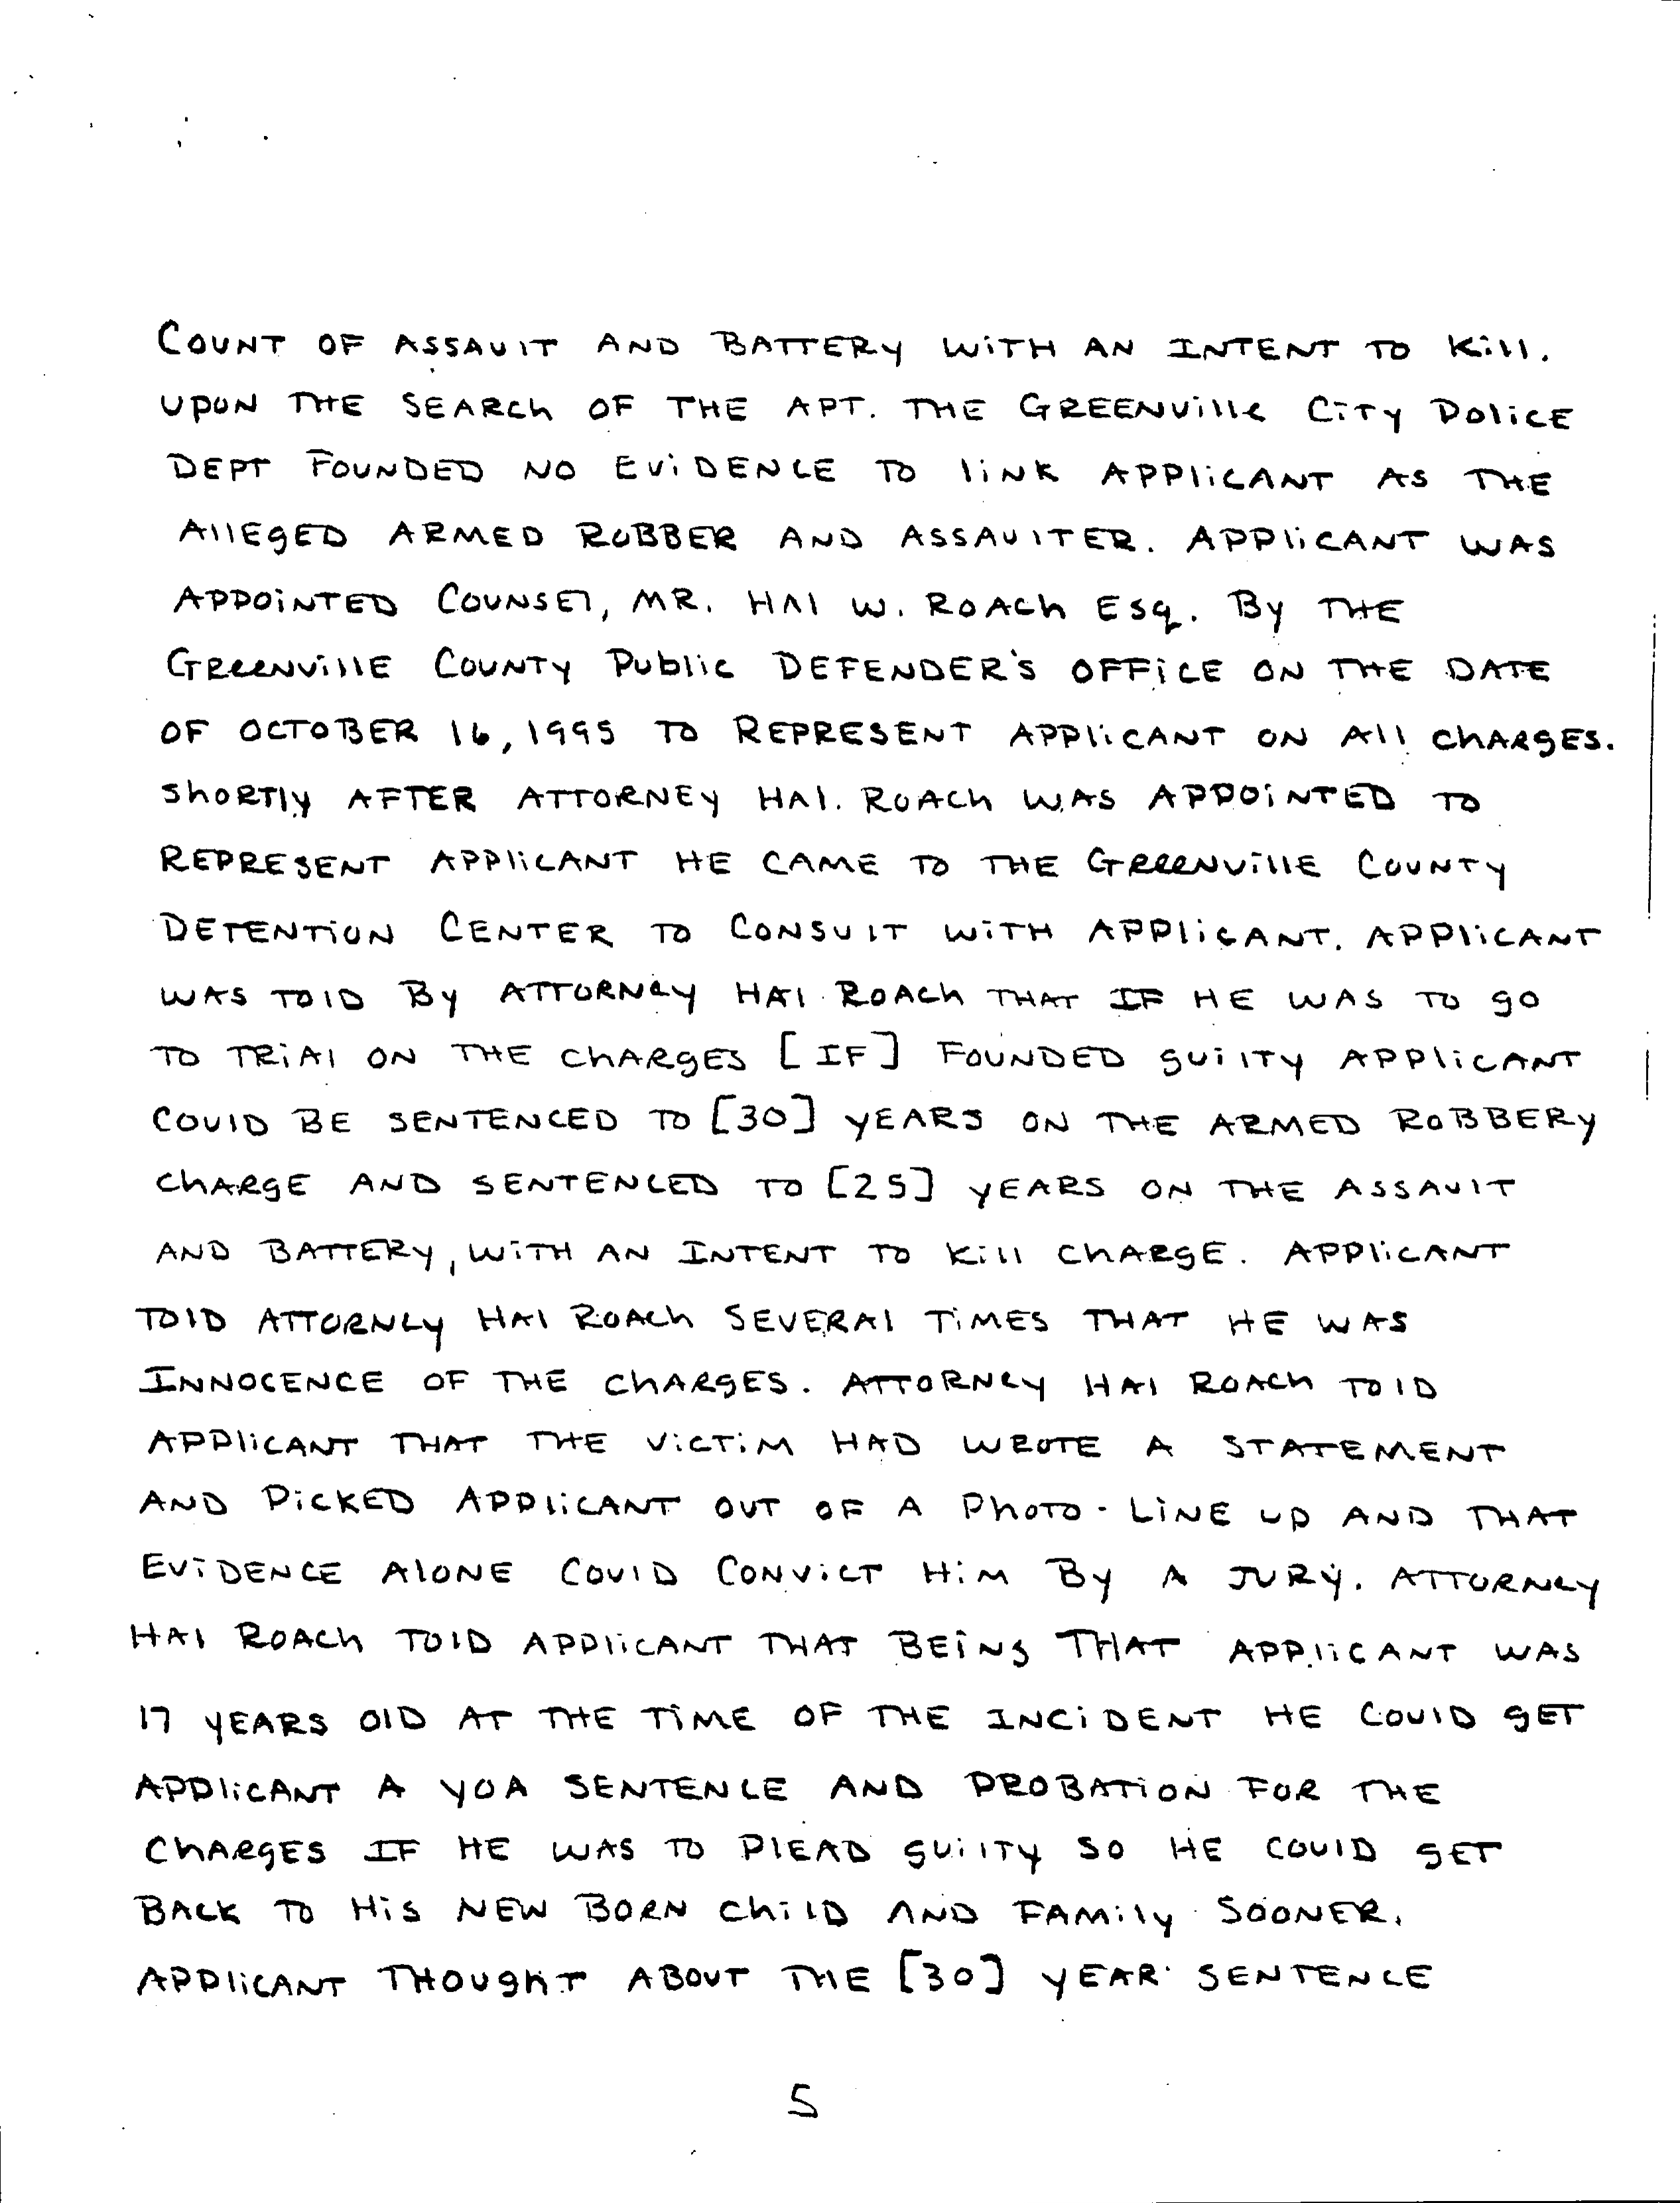 COUNT OF ASSAULT AND BATTERY WITH AN INTENT TO Kill.
UPON THE SEARCH OF THE APT. THE GREENVILLE CITY POLICE
DEPT FOUNDED NO EVIDENCE TO LINK APPLICANT AS THE
ALLEGED ARMED ROBBER AND ASSAULTER. APPLICANT WAS
APPOINTED COUNSEL, MR. HAL W. ROACH ESQ. BY THE
GREENVILLE COUNTY PUBLIC DEFENDER'S OFFICE ON THE DATE
OF OCTOBER 16, 1995 TO REPRESENT APPLICANT ON ALL CHARGES.
SHORTLY AFTER ATTORNEY HAL. ROACH WAS APPOINTED TO
REPRESENT APPLICANT HE CAME TO THE GREENVILLE COUNTY
DETENTION CENTER TO CONSULT WITH APPLICANT. APPLICANT
WAS TOLD BY ATTORNEY HAL ROACH THAT IF HE WAS TO GO
TO TRIAL ON THE CHARGES [IF] FOUNDED GUILTY APPLICANT
COULD BE SENTENCED TO [30] YEARS ON THE ARMED ROBBERY
CHARGE AND SENTENCED TO [25] YEARS ON THE ASSAULT
AND BATTERY, WITH AN INTENT TO KILL CHARGE. APPLICANT
TOLD ATTORNEY HAL ROACH SEVERAL TIMES THAT HE WAS
INNOCENCE OF THE CHARGES. ATTORNEY HAL ROACH TOLD
APPLICANT THAT THE VICTIM HAD WROTE A STATEMENT
AND PICKED APPLICANT OUT OF A PHOTO-LINE UP AND THAT
EVIDENCE ALONE COULD CONVICT HIM BY A JURY. ATTORNEY
HAL ROACH TOLD APPLICANT THAT BEING THAT APPLICANT WAS
17 YEARS OLD AT THE TIME OF THE INCIDENT HE COULD GET
APPLICANT A YOA SENTENCE AND PROBATION FOR THE
CHARGES IF HE WAS TO PLEAD GUILTY SO HE COULD GET
BACK TO HIS NEW BORN CHILD AND FAMILY SOONER.
APPLICANT THOUGHT ABOUT THE [30] YEAR SENTENCE
5